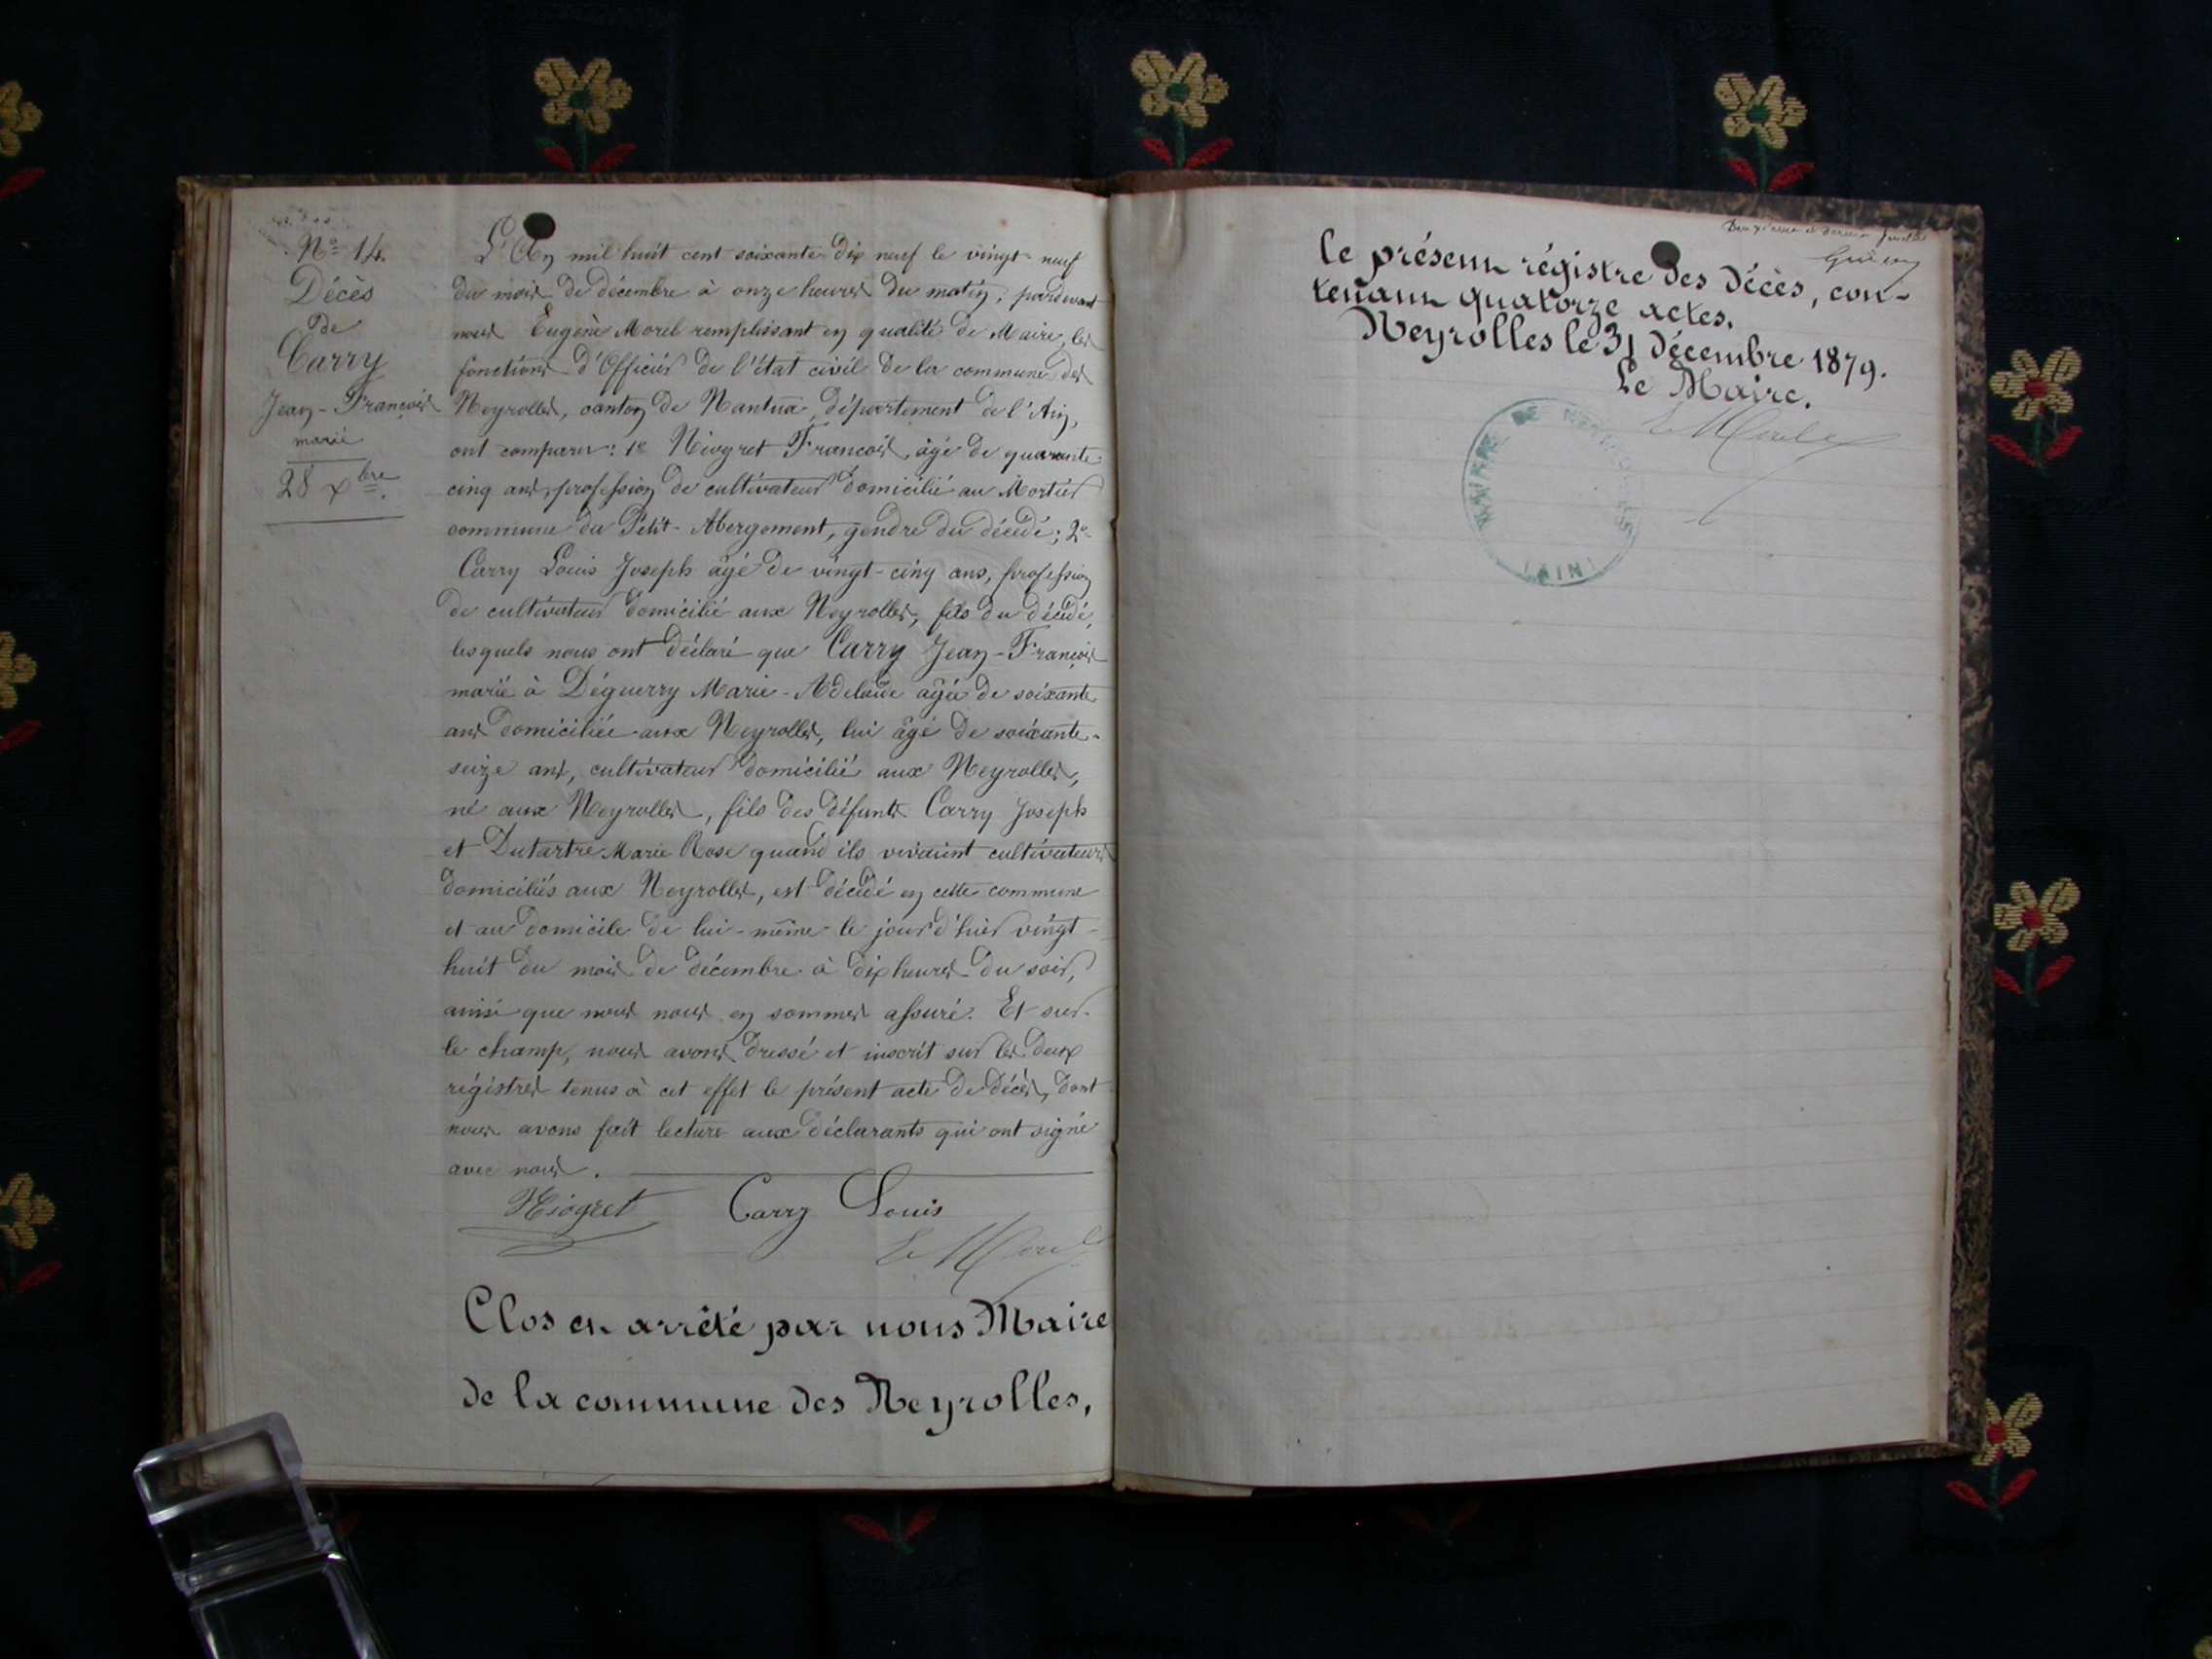 N° 14.
Décès
de
Carry
Jean-François
marié
28 Xbre.
L'An mil huit cent soixante dix neuf le vingt-neuf
du mois de décembre à onze heures du matin, pardevant
nous Eugène Morel remplissant en qualité de Maire, les
fonctions d'Officier de l'état civil de la commune des
Neyrolles, canton de Nantua, département de l'Ain,
ont comparu: 1e Niogret François, âgé de quarante-
cinq ans, profession de cultivateur domicilié au Mortier
commune du Petit-Abergement, gendre du décédé; 2e
Carry Louis Joseph âgé de vingt-cinq ans, profession
de cultivateur domicilié aux Neyrolles, fils du décédé,
lesquels nous ont déclaré que Carry Jean-François
marié à Déguerry Marie-Adelaïde âgée de soixante
ans domiciliée aux Neyrolles, lui âgé de soixante-
seize ans, cultivateur domicilié aux Neyrolles,
né aux Neyrolles, fils des défunts Carry Joseph
et Dutartre Marie Rose quand ils vivaient cultivateurs
domiciliés aux Neyrolles, est décédé en cette commune
et au domicile de lui-même le jour d'hier vingt-
huit du mois de décembre à dix heures du soir,
ainsi que nous nous en sommes assuré. Et sur
le champ, nous avons dressé et inscrit sur les deux
régistres tenus à cet effet le présent acte de décès, dont
nous avons fait lecture aux déclarants qui ont signé
avec nous.
Niogret Carry Louis
E Morel
Clos et arrêté par nous Maire
de la commune des Neyrolles,
Deuxième et dernier feuillet
le présent régistre des décès, con-
tenant quatorze actes.
Neyrolles le 31 décembre 1879.
Le Maire.
E Morel
MAIRIE DE NEYROLLES
(AIN)